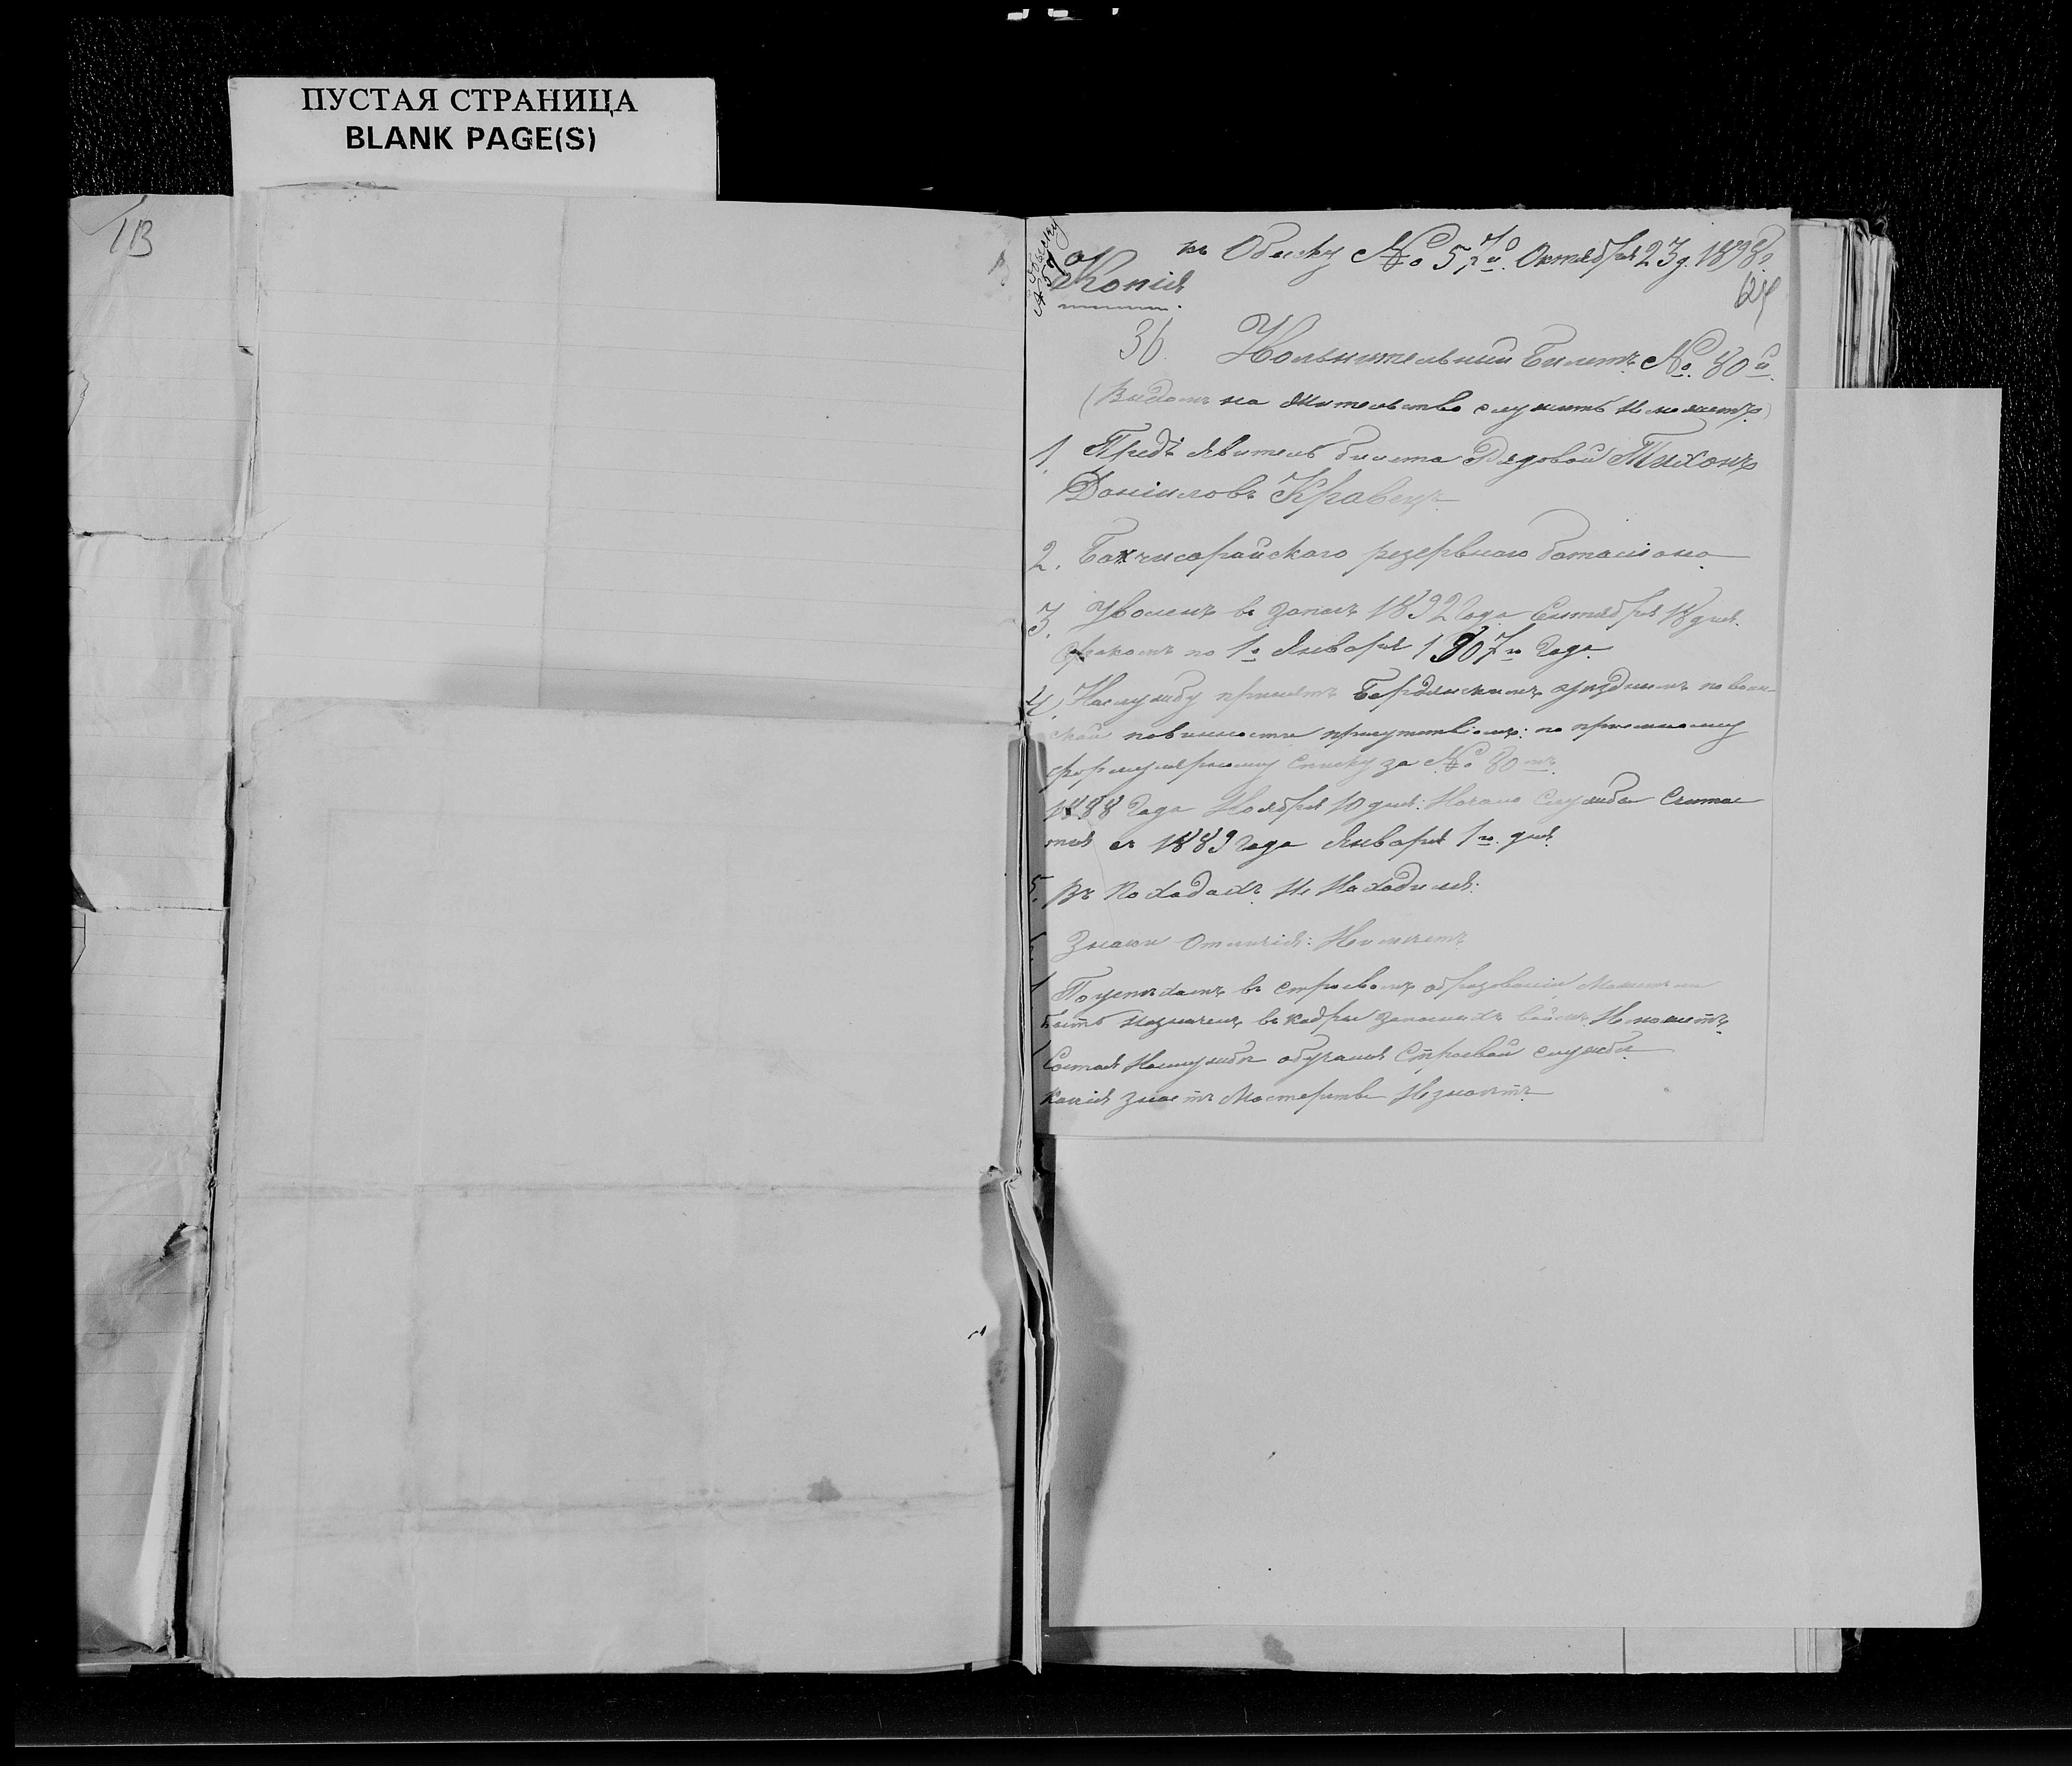 ПУСТАЯ СТРАНИЦА
BLANK PAGE(S)
1В
къ Обыску № 57й. Октября 23 д. 1898
Копія
36. Увольнительный Билетъ № 80й
(Видомъ на жительство служить не можетъ)
1. Предъявитель билета Рядовой Тихонъ
Даніиловъ Кравецъ
2. Бахчисарайскаго резервнаго баталіона
3. Уволенъ въ запасъ 1892 Года Сентября 18 дня.
срокомъ по 1е Января 1907го Года
4. На службу принятъ Бердянскимъ уѣзднымъ по воин-
ской повинности присутствіемъ: по пріемному
формулярному списку за № 80мъ
1888 Года Ноября 10 дня: Начало Службы Считае
тся съ 1889 Года Января 1го дня.
5. Въ Походахъ Не Находился:
Знаки Отличія: Не имѣетъ
По успѣхамъ въ строевомъ образованіи Можетъ ли
быть назначенъ въ кадры запасныхъ войскъ Не можетъ
Состоя На службѣ обучался Строевой службѣ
какія знаетъ Мастерства Не знаетъ